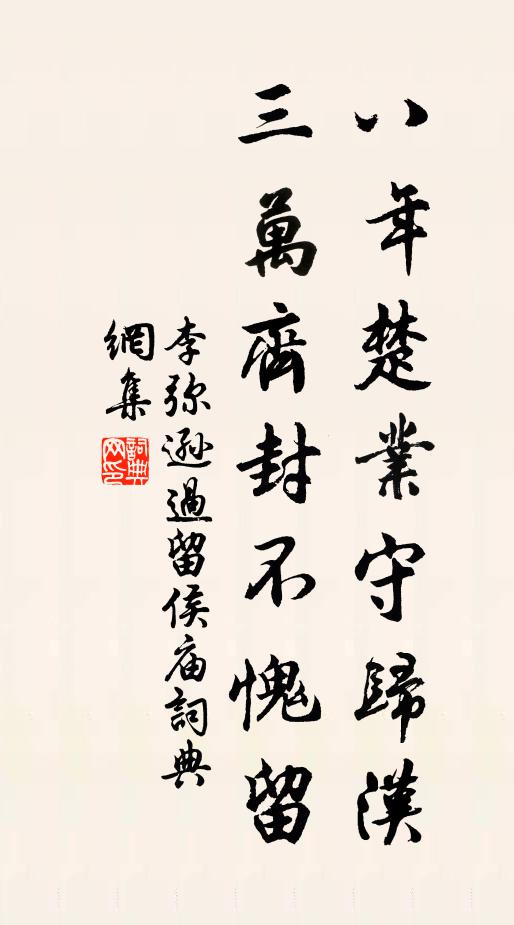 八年楚業守歸漢
三萬齊封不愧留
李弥遜過留侯庙詞典
網集
詞典網印